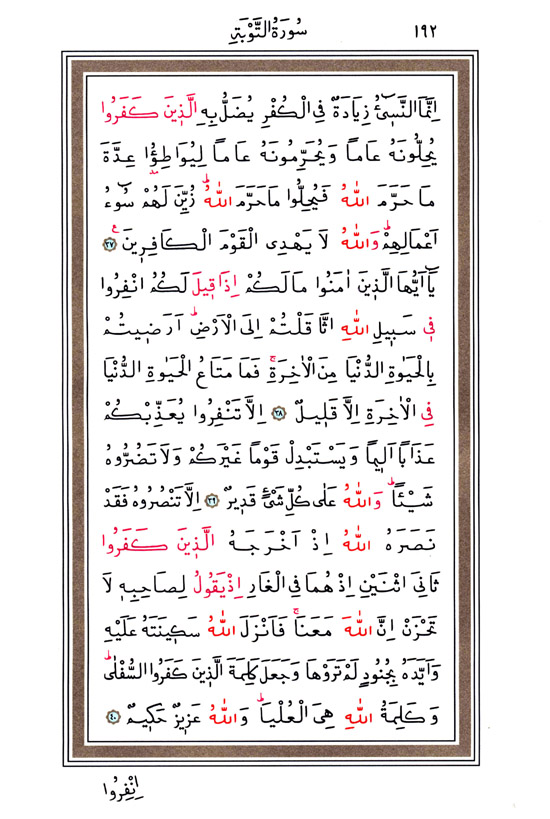 ١٩٢ سُورَةُ التَّوْبَةِ
اِنَّمَا النَّسٖٓيءُ زِيَادَةٌ فِي الْكُفْرِ يُضَلُّ بِهِ الَّذٖينَ كَفَرُوا
يُحِلُّونَهُ عَاماً وَيُحَرِّمُونَهُ عَاماً لِيُوَاطِؤُ۫ا عِدَّةَ
مَا حَرَّمَ اللّٰهُ فَيُحِلُّوا مَا حَرَّمَ اللّٰهُؕ زُيِّنَ لَهُمْ سُٓوءُ
اَعْمَالِهِمْؕ وَاللّٰهُ لَا يَهْدِي الْقَوْمَ الْكَافِرٖينَࣖ ٣٧
يَٓا اَيُّهَا الَّذٖينَ اٰمَنُوا مَا لَكُمْ اِذَا قٖيلَ لَكُمُ انْفِرُوا
فٖي سَبٖيلِ اللّٰهِ اثَّاقَلْتُمْ اِلَى الْاَرْضِؕ اَرَضٖيتُمْ
بِالْحَيٰوةِ الدُّنْيَا مِنَ الْاٰخِرَةِۚ فَمَا مَتَاعُ الْحَيٰوةِ الدُّنْيَا
فِي الْاٰخِرَةِ اِلَّا قَلٖيلٌ ٣٨ اِلَّا تَنْفِرُوا يُعَذِّبْكُمْ
عَذَاباً اَلٖيماً وَيَسْتَبْدِلْ قَوْماً غَيْرَكُمْ وَلَا تَضُرُّوهُ
شَيْـٔاًؕ وَاللّٰهُ عَلٰى كُلِّ شَيْءٍ قَدٖيرٌ ٣٩ اِلَّا تَنْصُرُوهُ فَقَدْ
نَصَرَهُ اللّٰهُ اِذْ اَخْرَجَهُ الَّذٖينَ كَفَرُوا
ثَانِيَ اثْنَيْنِ اِذْ هُمَا فِي الْغَارِ اِذْ يَقُولُ لِصَاحِبِهٖ لَا
تَحْزَنْ اِنَّ اللّٰهَ مَعَنَاۚ فَاَنْزَلَ اللّٰهُ سَكٖينَتَهُ عَلَيْهِ
وَاَيَّدَهُ بِجُنُودٍ لَمْ تَرَوْهَا وَجَعَلَ كَلِمَةَ الَّذٖينَ كَفَرُوا السُّفْلٰىؕ
وَكَلِمَةُ اللّٰهِ هِيَ الْعُلْيَاؕ وَاللّٰهُ عَزٖيزٌ حَكٖيمٌ ٤٠
اِنْفِرُوا